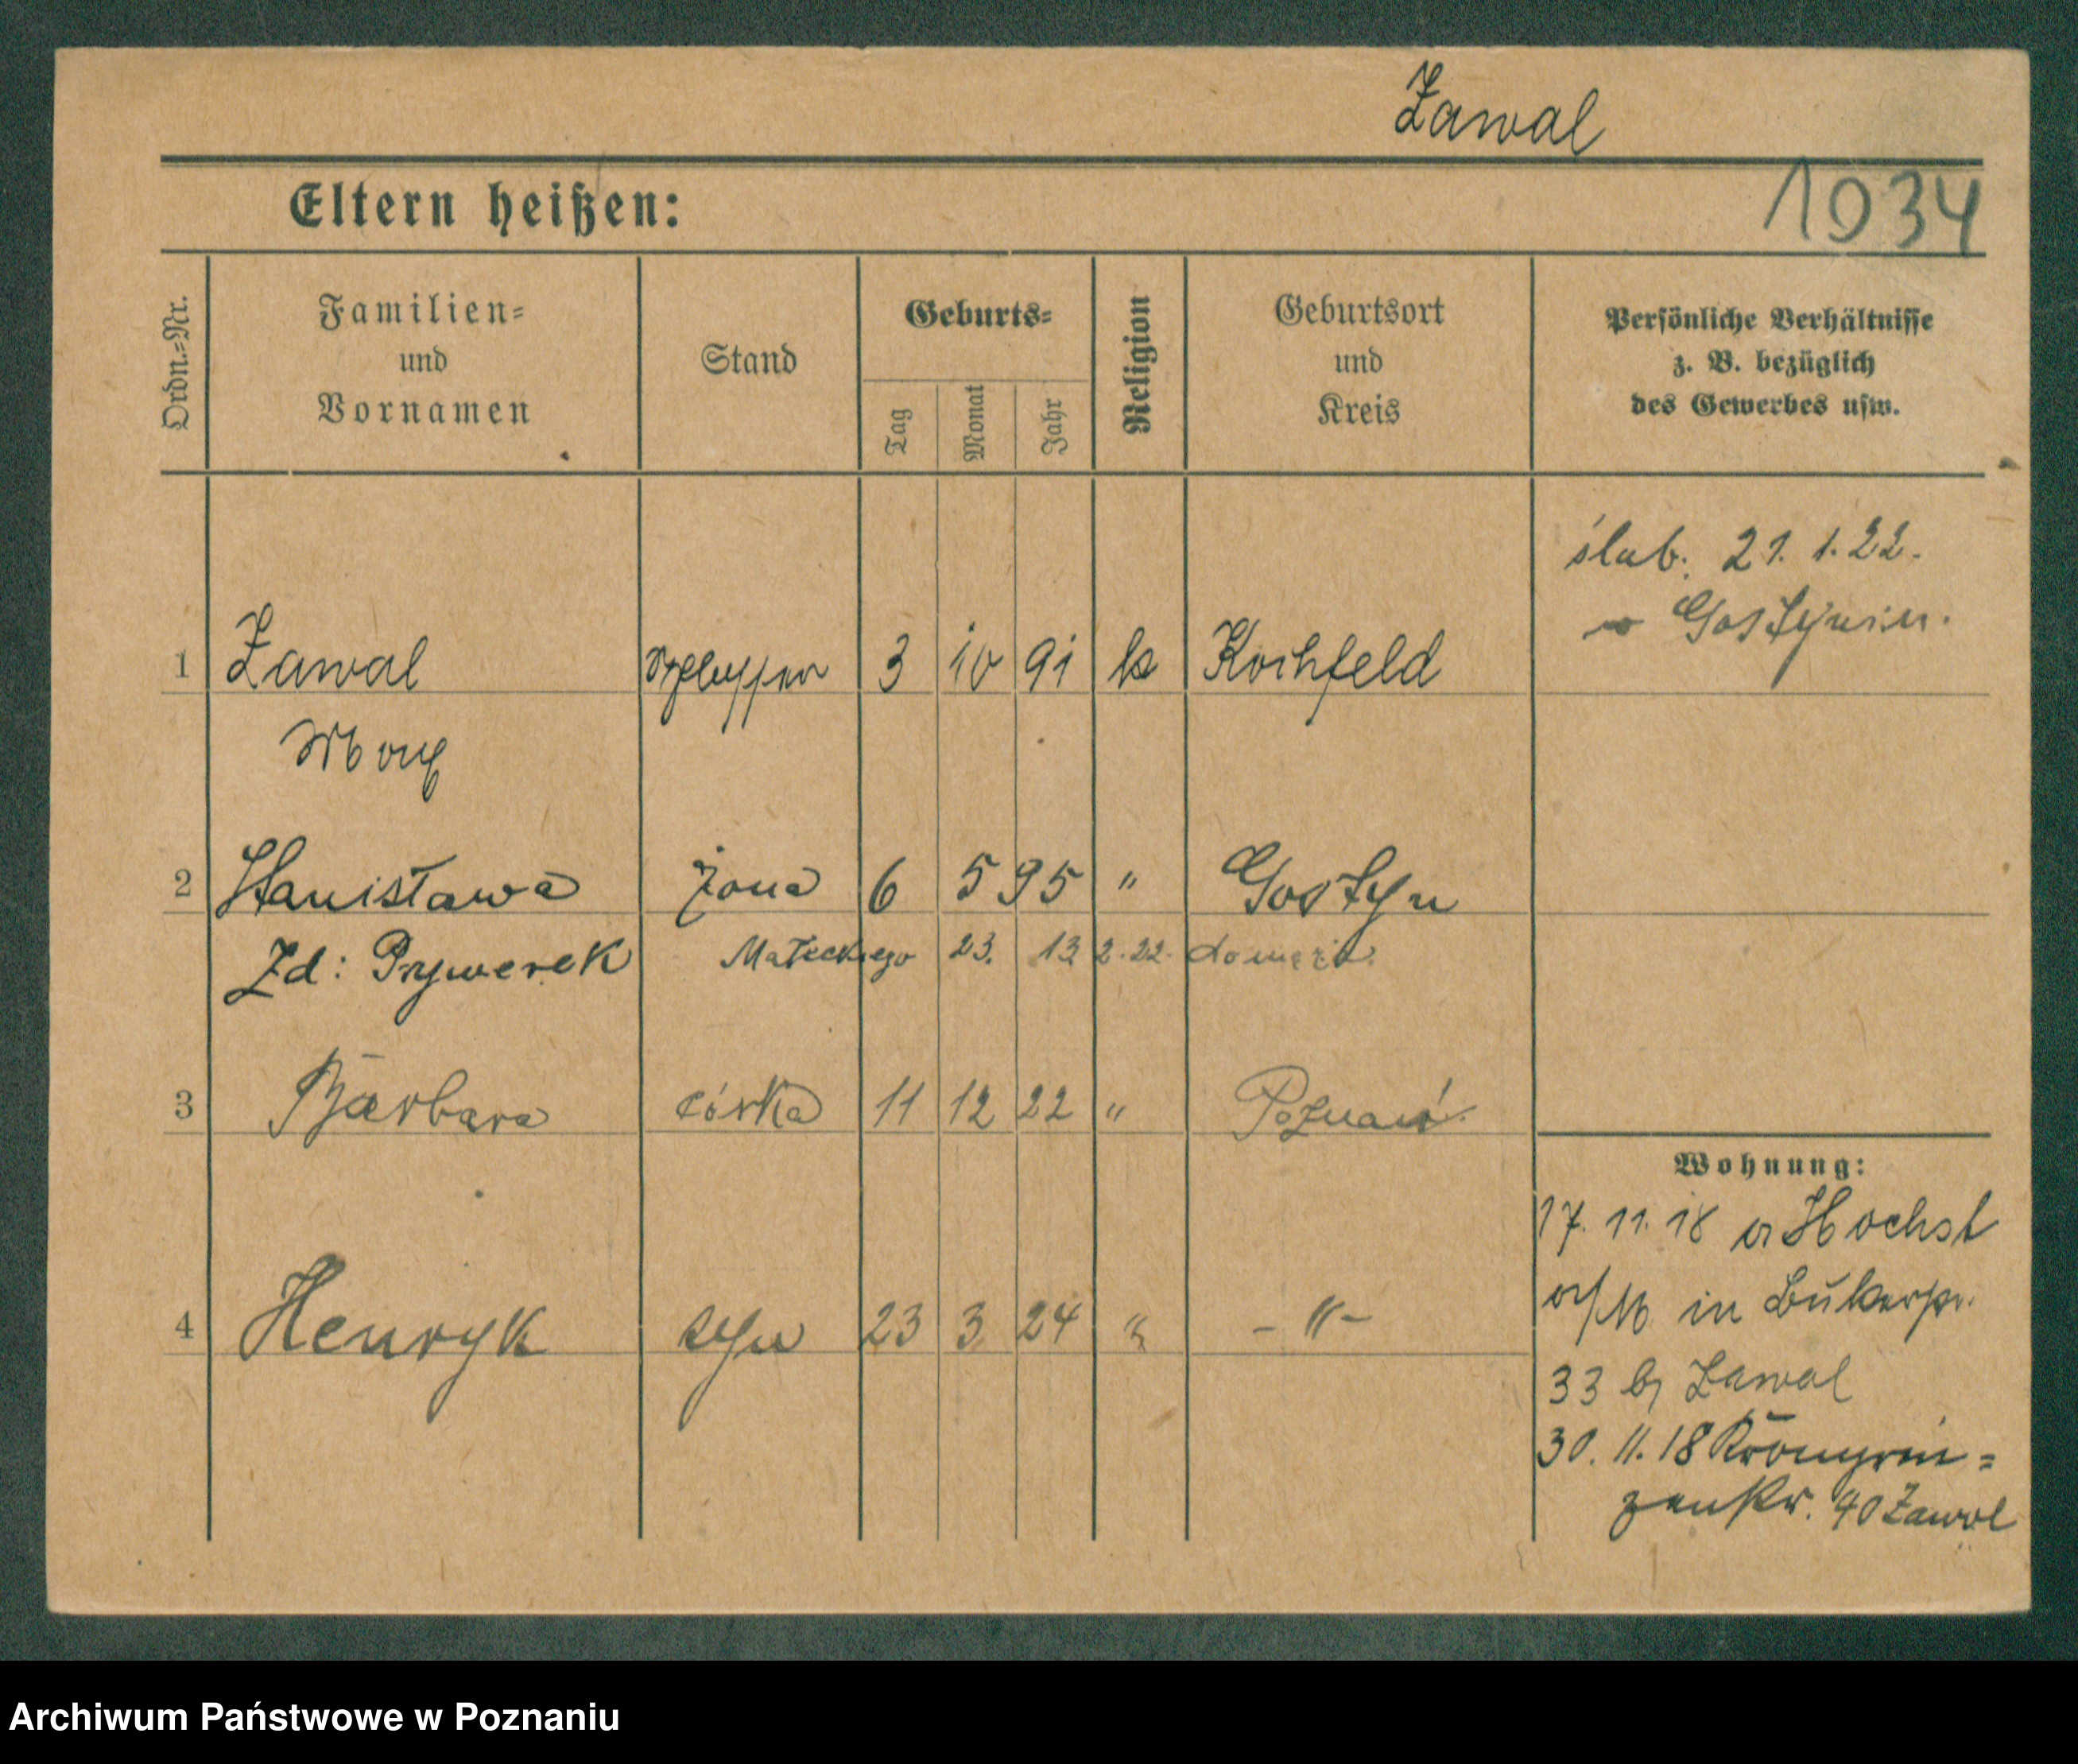 Zawal
Eltern heißen:
1034
Ordn.-Nr.
Familien-
und
Vornamen
Stand
Geburts-
Tag
Monat
Jahr
Religion
Geburtsort
und
Kreis
Persönliche Verhältnisse
z. B. bezüglich
des Gewerbes usw.
ślub. 21. 1. 22.
w Gostyniu.
1 Zawal 3 10 91 k Kochfeld
2 Stanisława żona 6 5 95 " Gostyn
Zd: Prywerek Małeckiego 23. 13 2. 22.
3 Barbara córka 11 12 22 " Poznań
4 Henryk syn 23 3 24 " - " -
Wohnung:
17. 11. 18 a Höchst
a/M in Bukerstr.
33 b/ Zawal
30. 11. 18 Kronprin=
zenstr. 40 Zawal
Archiwum Państwowe w Poznaniu